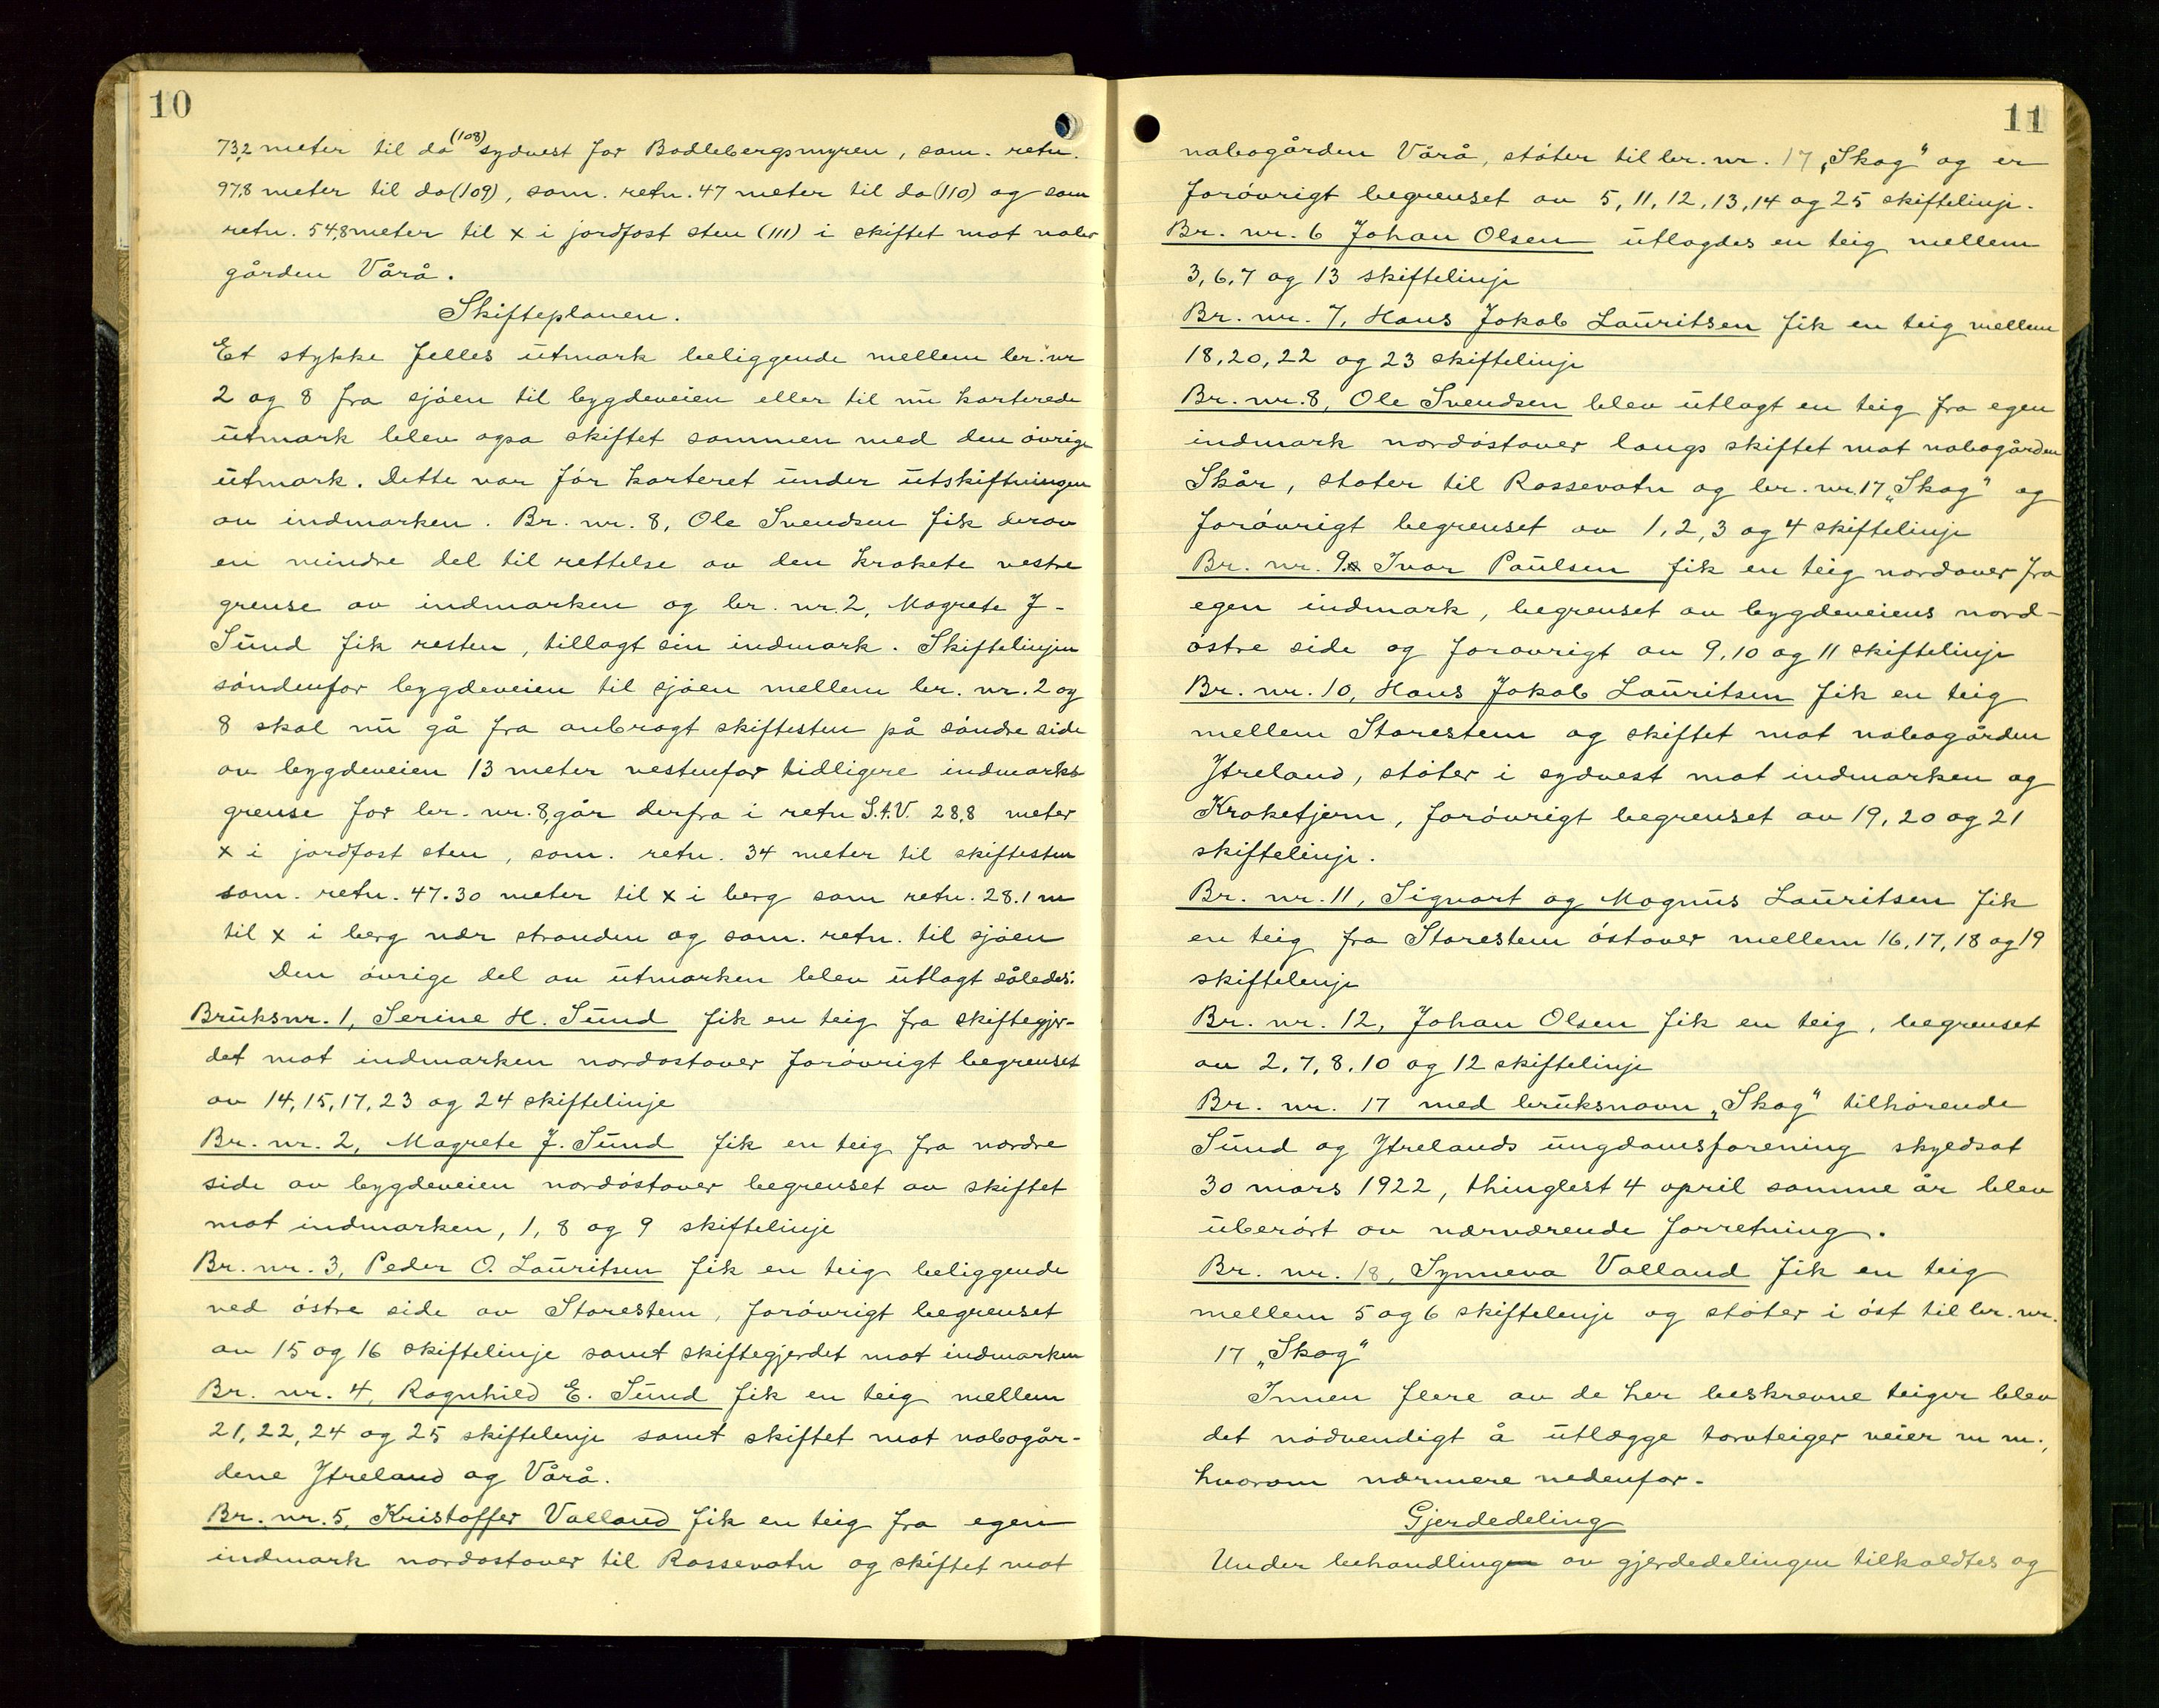 10
73,2 meter til do (108) sydvest for Bødlebergsmyren, sam. retn.
97,8 meter til do (109), sam. retn. 47 meter til do (110) og sam
retn. 54,8 meter til x i jordfast sten (111) i skiftet mot nabo
gården Vårå.
Skifteplanen.
Et stykke felles utmark beliggende mellem br. nr
2 og 8 fra sjöen til bygdeveien eller til nu karterede
utmark blev ogsa skiftet sammen med den övrige
utmark. Dette var för karteret under utskiftningen
av indmarken. Br. nr. 8, Ole Svendsen fik derav
en mindre del til rettelse av den krokete vestre
grense av indmarken og br. nr. 2, Magrete J-
Sund fik resten, tillagt sin indmark. Skiftelinjen
söndenfor bygdeveien til sjöen mellem br. nr. 2 og
8 skal nu gå fra anbragt skiftesten på söndre side
av bygdeveien 13 meter vestenfor tidligere indmarks-
grense for br. nr. 8, går derfra i retn S.t.V. 28,8 meter
x i jordfast sten, sam. retn. 34 meter til skiftesten
sam. retn. 47.30 meter til x i berg sam retn. 28.1 m
til x i berg nær stranden og sam. retn. til sjöen
Den övrige del av utmarken blev utlagt således:
Bruksnr. 1, Serine H. Sund fik en teig fra skiftegjer-
det mot indmarken nordostover foróvrigt begrenset
av 14, 15, 17, 23 og 24 skiftelinje
Br. nr. 2, Magrete J. Sund fik en teig fra nordre
side av bygdeveien nordöstover begrenset av skiftet
mot indmarken, 1, 8 og 9 skiftelinje
Br. nr. 3, Peder O. Lauritsen fik en teig beliggende
ved östre side av Storestem, forövrigt begrenset
av 15 og 16 skiftelinje samt skiftegjerdet mot indmarken
Br. nr. 4, Ragnhild E. Sund fik en teig mellem
21, 22, 24 og 25 skiftelinje samt skiftet mot nabogår-
dene Ytreland og Vårå.
Br. nr. 5, Kristoffer Valland fik en teig fra egen
indmark nordostover til Rossevatn og skiftet mot
11
nabogården Vårå, stöter til br. nr. 17 „Skog" og er
forövrigt begrenset av 5, 11, 12, 13, 14 og 25 skiftelinje.
Br. nr. 6 Johan Olsen utlagdes en teig mellem
3, 6, 7 og 13 skiftelinje
Br. nr. 7, Hans Jakob Lauritsen fik en teig mellem
18, 20, 22 og 23 skiftelinje
Br. nr. 8, Ole Svendsen blev utlagt en teig fra egen
indmark nordöstover langs skiftet mot nabogården
Skår, stoter til Rossevatn og br. nr. 17 „Skog" og
forövrigt begrenset av 1, 2, 3 og 4 skiftelinje
Br. nr. 9 Ivar Paulsen fik en teig nordover fra
egen indmark, begrenset av bygdeveiens nord-
östre side og forovrigt av 9, 10 og 11 skiftelinje
Br. nr. 10, Hans Jakob Lauritsen fik en teig
mellem Storestem og skiftet mot nabogården
Ytreland, stöter i sydvest mot indmarken og
Kroketjern, forövrigt begrenset av 19, 20 og 21
skiftelinje.
Br. nr. 11, Sigvart og Magnus Lauritsen fik
en teig fra Storestem östover mellem 16, 17, 18 og 19
skiftelinje
Br. nr. 12, Johan Olsen fik en teig, begrenset
av 2, 7, 8, 10 og 12 skiftelinje
Br. nr. 17 med bruksnavn „Skog" tilhörende
Sund og Ytrelands ungdomsforening skyldsat
30 mars 1922, thinglest 4 april samme år blev
uberört av nærværende forretning.
Br. nr. 18, Synneva Valland fik en teig
mellem 5 og 6 skiftelinje og stöter i öst til br. nr.
17 „Skog"
Innen flere av de her beskrevne teiger blev
det nödvendigt å utlægge torvteiger veier m m.,
hvorom nærmere nedenfor.
Gjerdedeling
Under behandlingen av gjerdedelingen tilkaldtes og